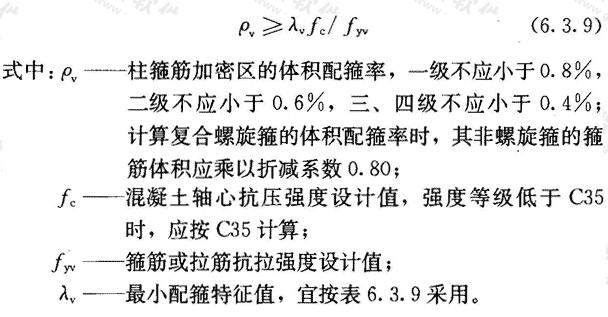 ρᵥ ≥ λᵥf_c / f_yv (6.3.9)
式中：ρᵥ——柱箍筋加密区的体积配箍率，一级不应小于0.8％，
二级不应小于0.6％，三、四级不应小于0.4％；
计算复合螺旋箍的体积配箍率时，其非螺旋箍的箍
筋体积应乘以折减系数0.80；
f_c——混凝土轴心抗压强度设计值，强度等级低于C35
时，应按C35计算；
f_yv——箍筋或拉筋抗拉强度设计值；
λᵥ——最小配箍特征值，宜按表6.3.9采用。